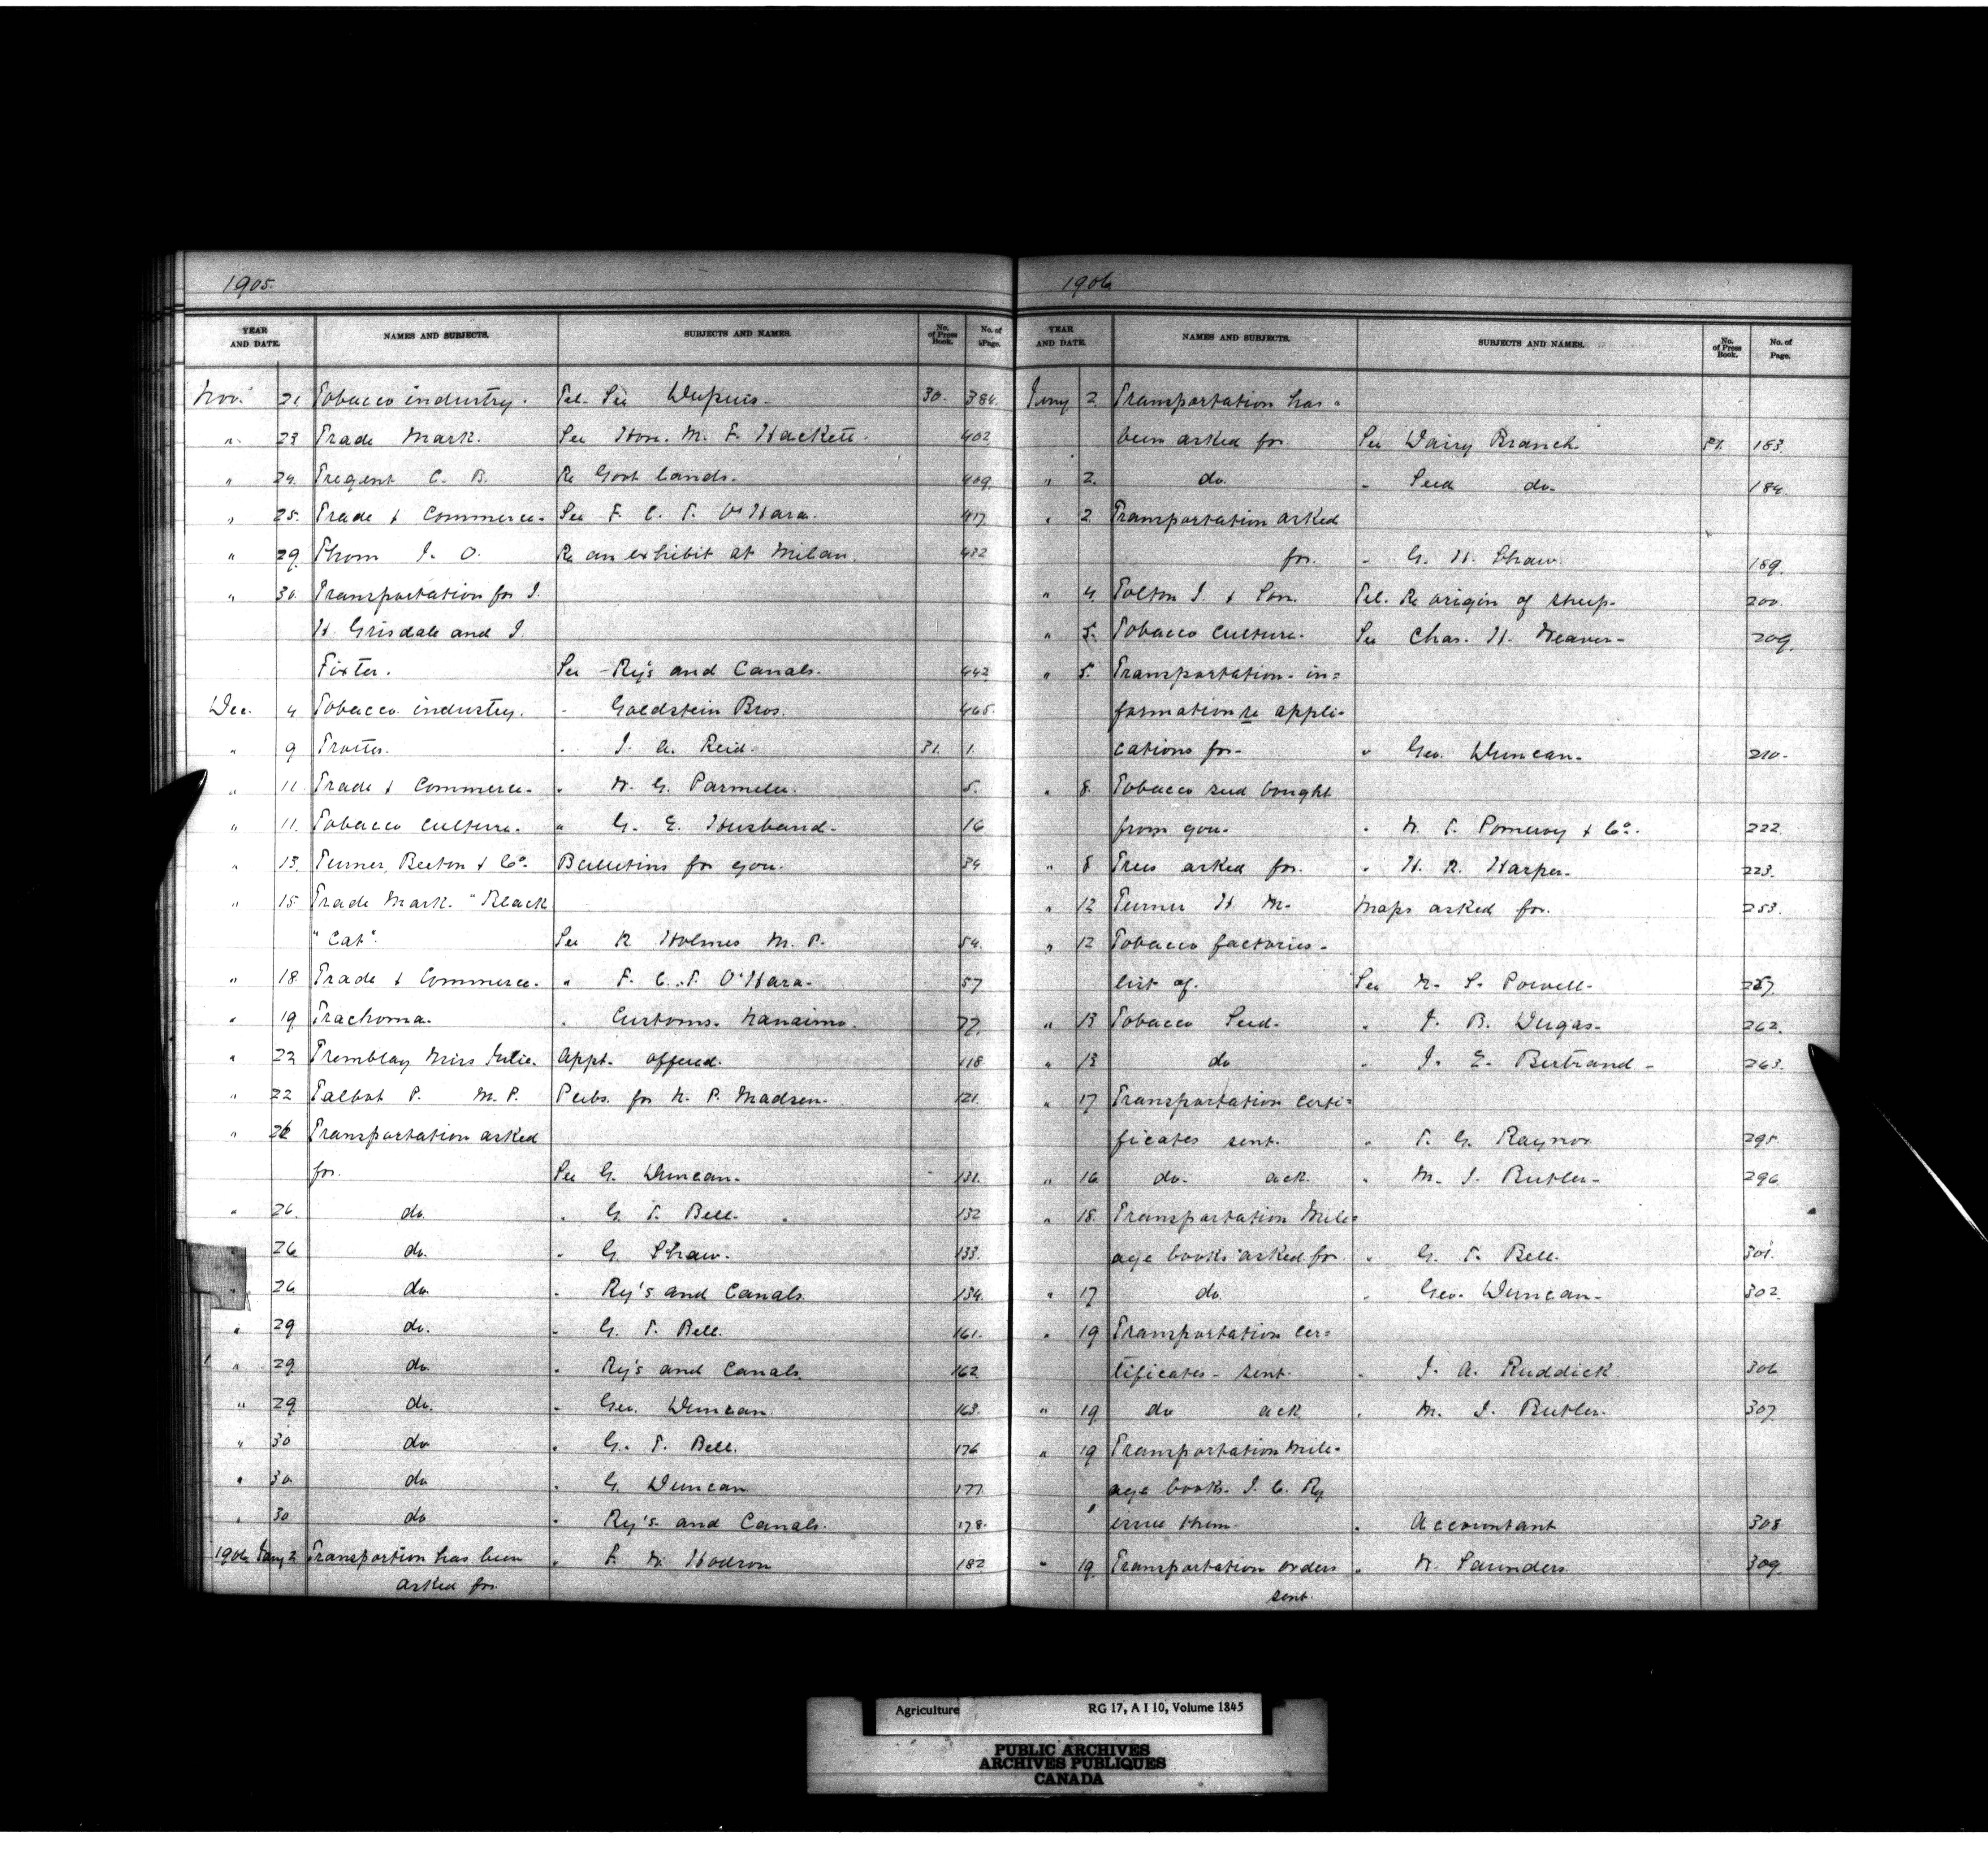 1905.
YEAR AND DATE. NAMES AND SUBJECTS. SUBJECTS AND NAMES. No. of Press Book. No. of Page.
Nov. 21 Tobacco industry. Tel. See Dupuis. 30. 384.
" 23 Trade Mark. See Hon. M. F. Hackett. 402
" 24. Tregent C. B. Re Govt lands. 409.
" 25. Trade & Commerce. See F. C. T. O'Hara. 417.
" 29 Thom J. O. Re an exhibit at Milan. 432
" 30. Transportation for J.
H. Grisdale and J.
Fixter. See Ry's and Canals. 442
Dec. 4 Tobacco industry. " Goldstein Bros. 465.
" 9 Trotter. " J. A. Reid. 31. 1.
" 11 Trade & Commerce. " W. G. Parmelee. 5.
" 11. Tobacco culture. " G. E. Husband. 16
" 13. Turner, Beeton & Co. Bulletins for you. 34.
" 15 Trade Mark. "Black
"Cat". See R Holmes M. P. 54.
" 18 Trade & Commerce. " F. C. T. O'Hara. 57
" 19 Trachoma. " Customs. Nanaimo. 77.
" 22 Tremblay Miss Julie. Appt. offered. 118.
" 22 Talbot P. M. P. Pubs. for N. P. Madsen. 121.
" 26 Transportation asked
for. See G. Duncan. 131.
" 26. do. " G. T. Bell. 132
26 do. " G. Shaw. 133.
" 26 do. " Ry's and Canals. 134.
" 29 do. " G. T. Bell. 161.
" 29 do. " Ry's and Canals. 162
" 29 do. " Geo. Duncan. 163.
" 30 do " G. T. Bell. 176
" 30 do " G. Duncan. 177.
" 30 do " Ry's and Canals. 178.
1906 Jany 2 Transportion has been " F. W. Hodson 182
asked for.
1906
YEAR AND DATE. NAMES AND SUBJECTS. SUBJECTS AND NAMES. No. of Press Book. No. of Page.
Jany 2. Transportation has
been asked for. See Dairy Branch. 31. 183.
" 2. do. " Seed do. 184
" 2 Transportation asked
for. " G. H. Shaw. 189.
" 4. Tolton J. & Son. Tel. Re origin of sheep. 200.
" 5. Tobacco culture. See Chas. H. Weaver. 209.
" 5. Transportation - in=
formation re appli-
cations for. " Geo. Duncan. 210.
" 8. Tobacco seed bought
from you. " W. T. Pomeroy & Co. 222.
" 8 Trees asked for. " H. R. Harper. 223.
" 12 Turner H. M. Maps asked for. 253.
" 12 Tobacco factories -
list of. See W. S. Powell. 257
" 13 Tobacco Seed. " J. B. Dugas. 262.
" 13 do " J. E. Bertrand. 263.
" 17 Transportation certi=
ficates sent. " T. G. Raynor. 295.
" 16 do. ack. " M. J. Butler. 296
" 18. Transportation Mile=
age books asked for. " G. T. Bell. 301.
" 17 do. " Geo. Duncan. 302.
" 19 Transportation cer=
tificates - sent. " J. A. Ruddick. 306
" 19 do ack. " M. J. Butler. 307.
" 19 Transportation Mile-
age books. I. C. Ry
issue them. " Accountant 308
" 19. Transportation orders " W. Saunders. 309.
sent.
Agriculture RG 17, A I 10, Volume 1845
PUBLIC ARCHIVES
ARCHIVES PUBLIQUES
CANADA